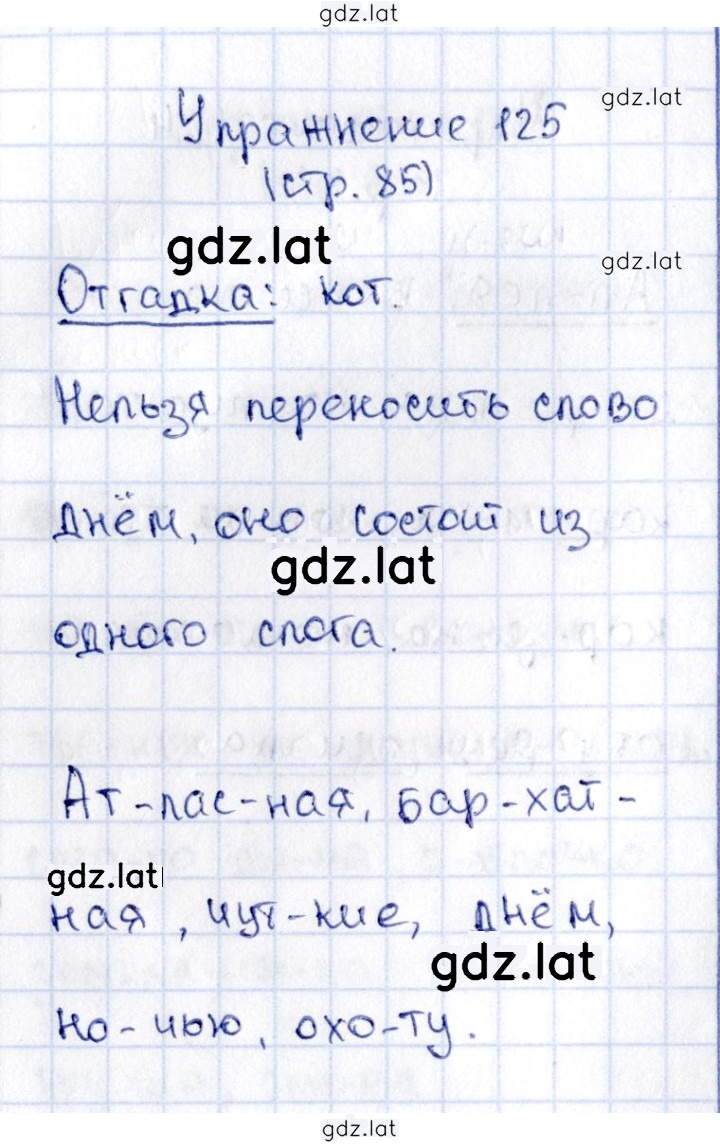 gdz.lat
Упражнение 125
gdz.lat
(стр. 85)
gdz.lat
gdz.lat
Отгадка: кот.
Нельзя переносить слово
днём, оно состоит из
gdz.lat
одного слога.
Ат-лас-ная, бар-хат-
gdz.lat
ная, чут-кие, днём,
gdz.lat
но-чью, охо-ту.
gdz.lat